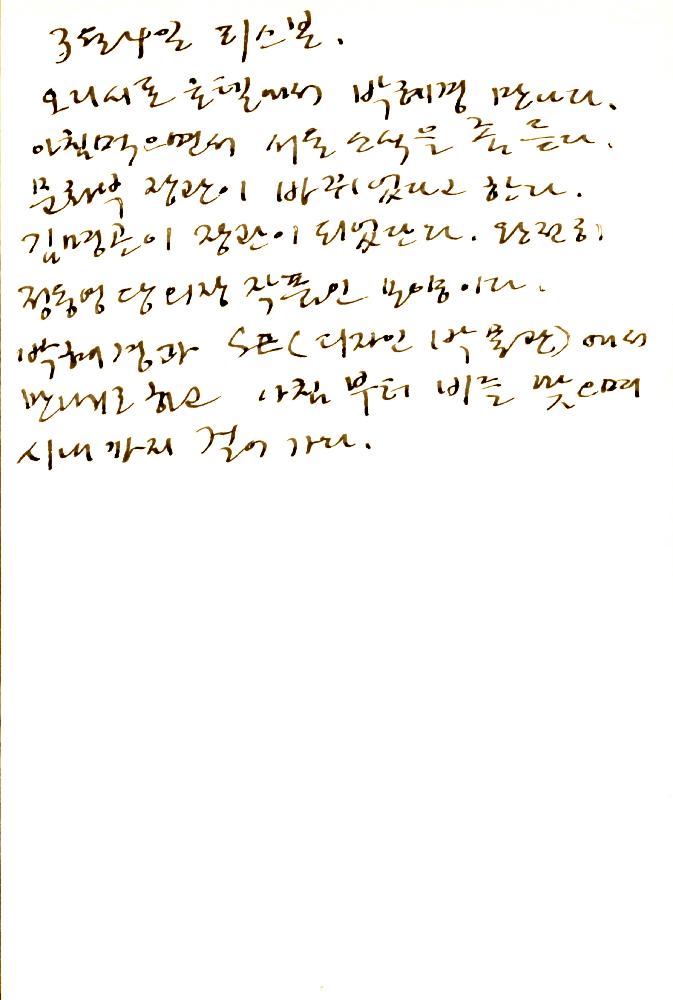 3월 4일 리스본.
오리시폰 호텔에서 박혜경 만나다.
아침먹으면서 서울 소식을 좀 듣다.
문화부 장관이 바뀌었다고 한다.
김명곤이 장관이 되었단다. 완전히
정동영 당의장 작품인 모양이다.
박혜경과 (디자인 박물관)에서
만나기로 하고 아침부터 비를 맞으며
시내까지 걸어 가다.